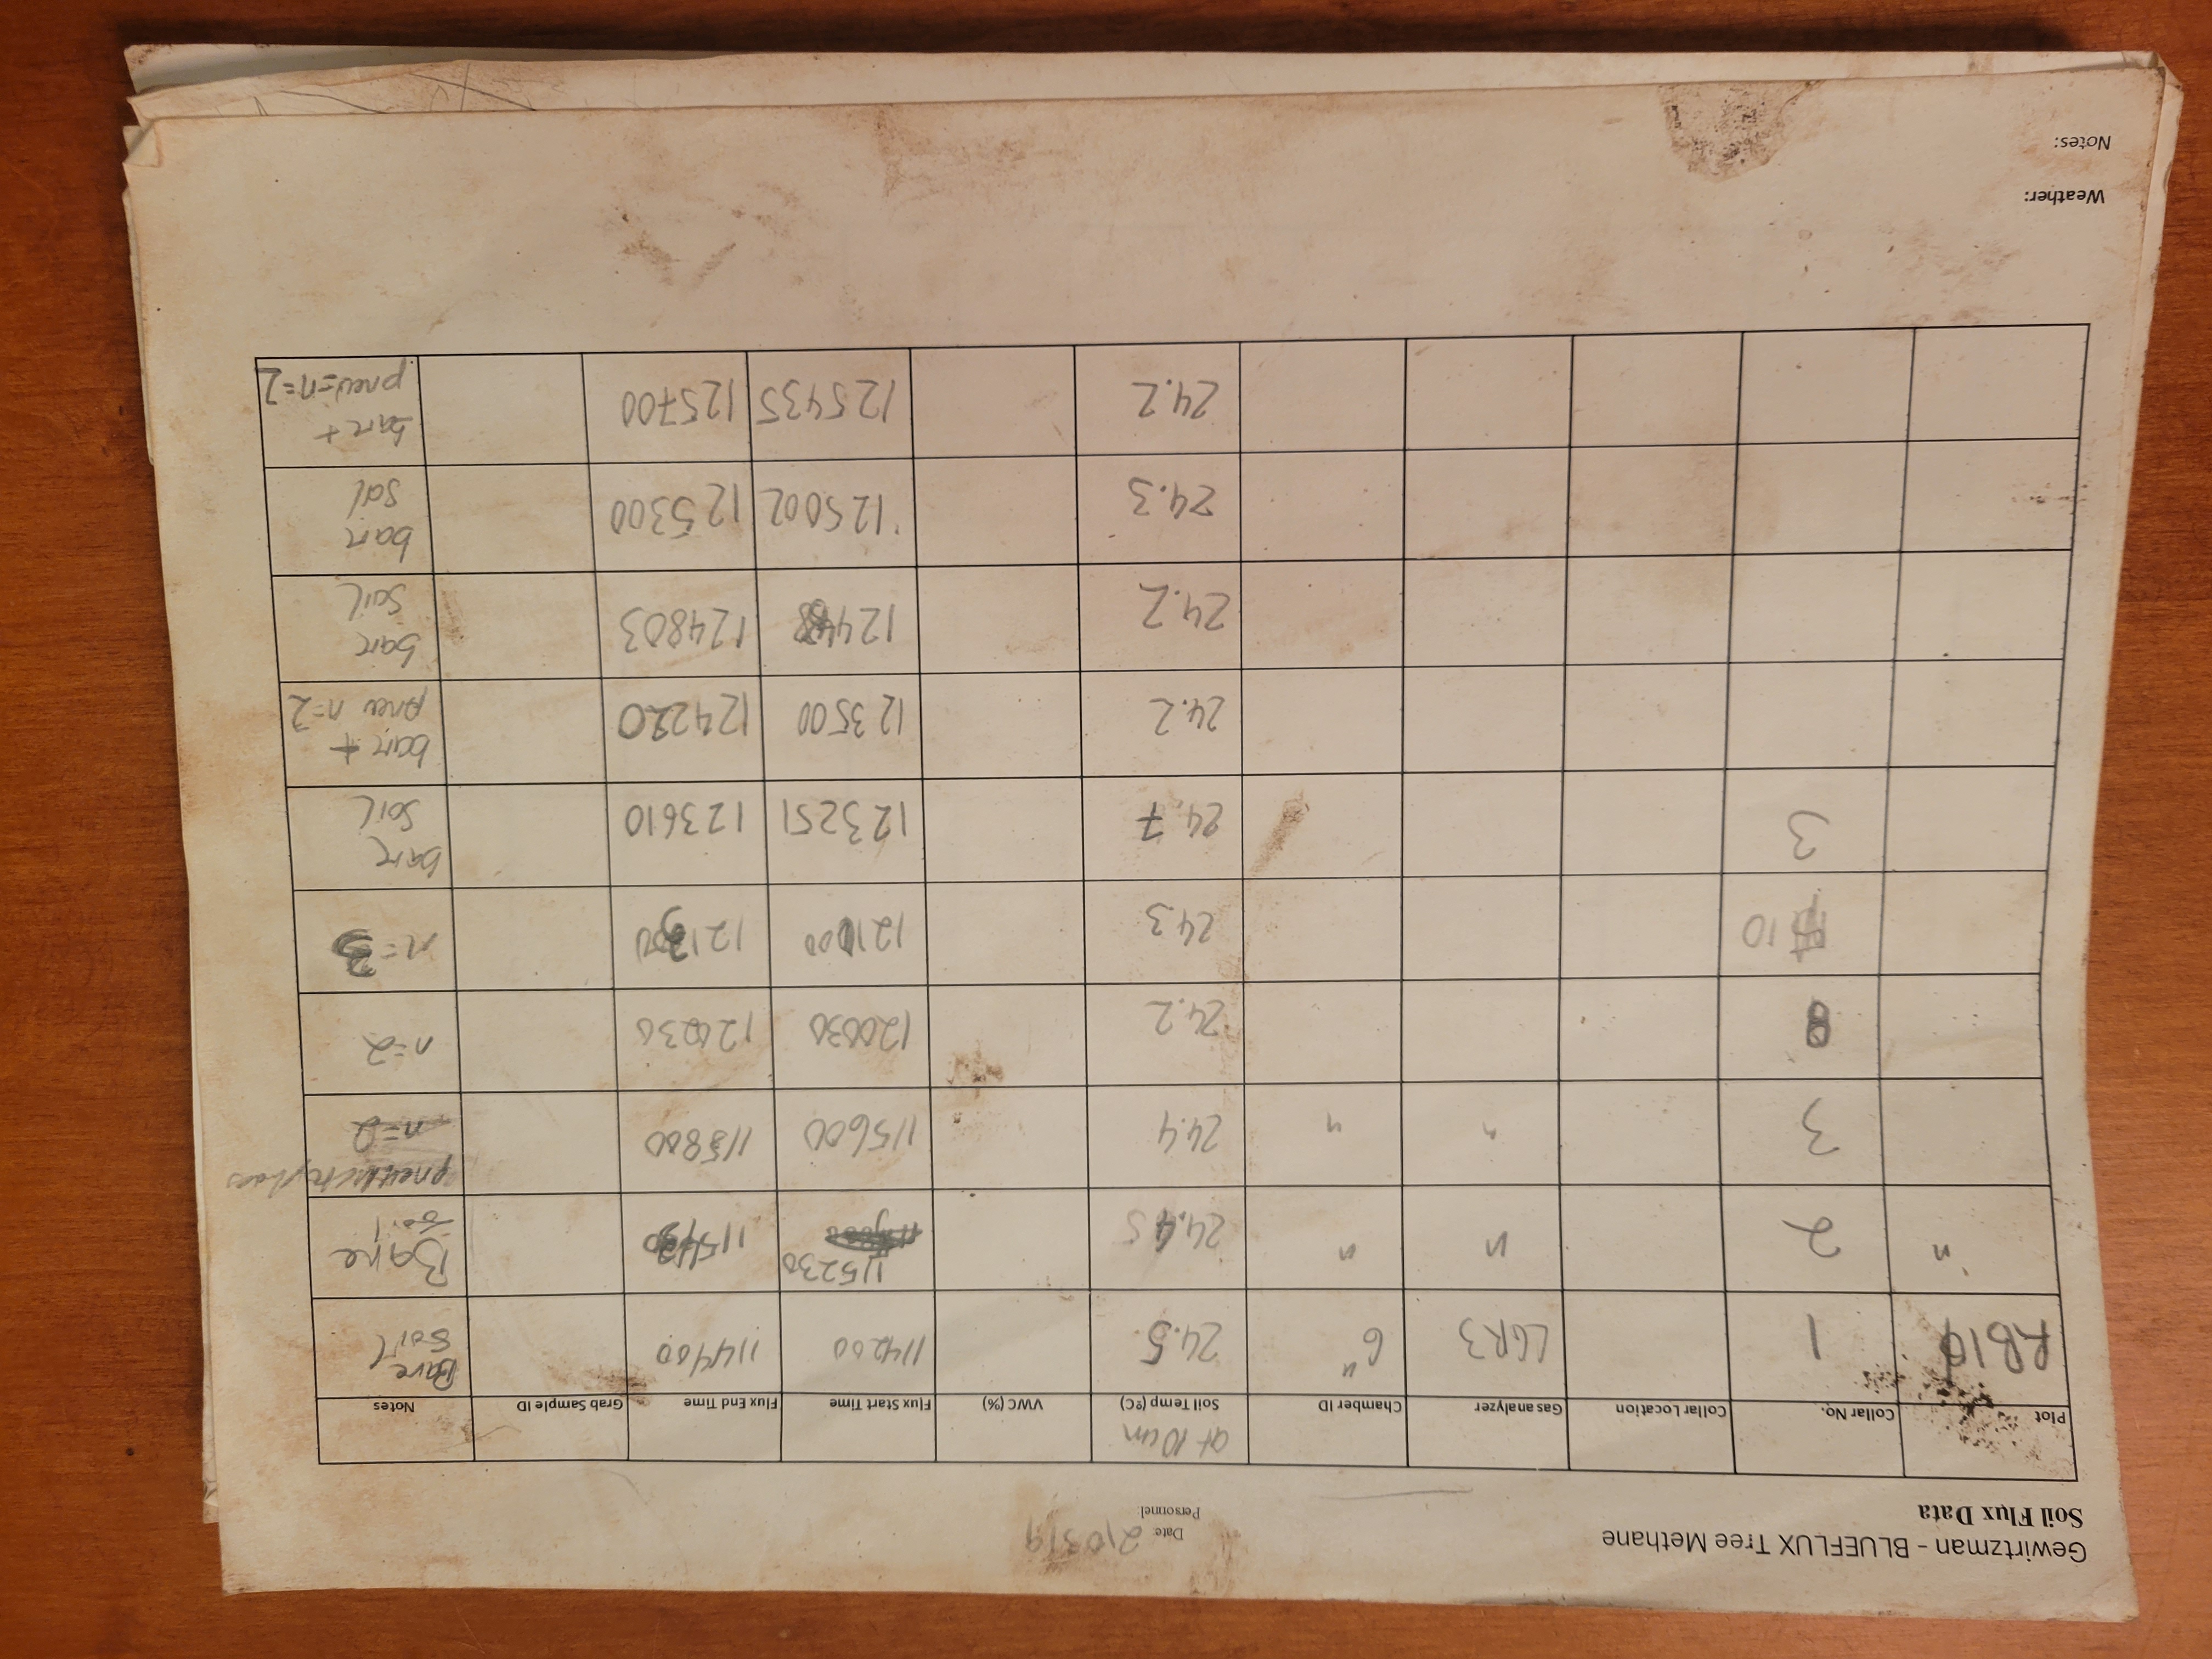 Gewirtzman - BLUEFLUX Tree Methane
Soil Flux Data
Date 210319
Personnel
at 10cm
Plot Collar No. Collar Location Gas analyzer Chamber ID Soil Temp (ºC) VWC (%) Flux Start Time Flux End Time Grab Sample ID Notes
1 LGR3 6" 24.5 114200 114400 Bare soil
" 2 " " 115230 Bare soil
3 " " 24.4 115600 115800
8 24.2 120030 n=2
10 24.3 n=3
3 24.7 123251 123610 bare soil
24.2 123500 124220 bare + pneu n=2
24.2 124803 bare soil
24.3 125002 125300 bare soil
24.2 125435 125700 bare + pneu=n=2
Weather:
Notes: